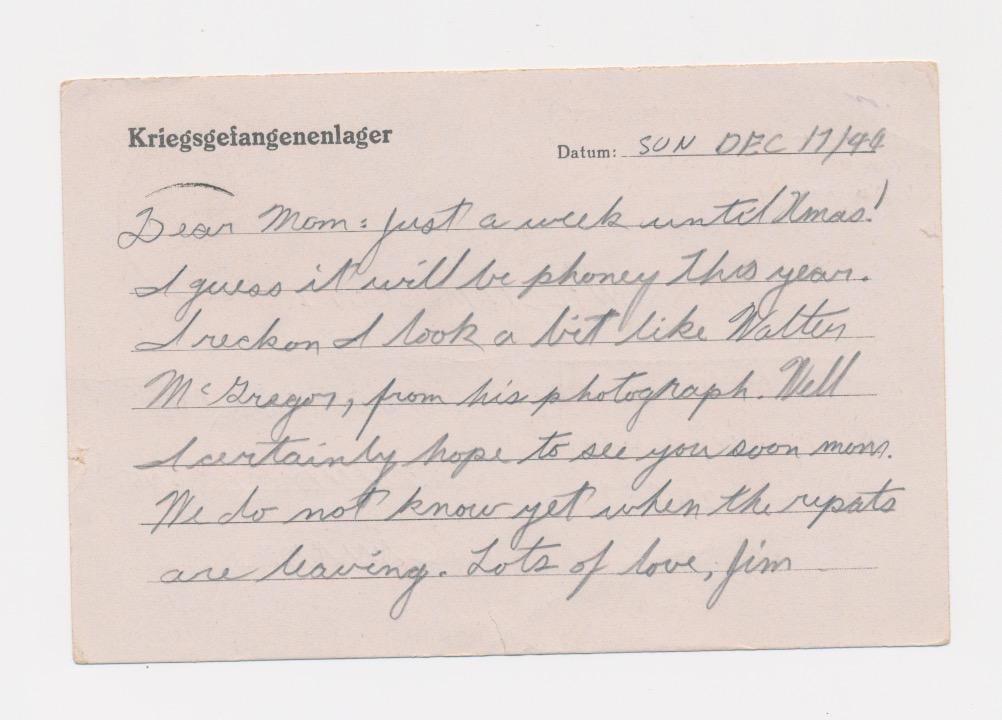 Kriegsgefangenenlager
Datum: SUN DEC 17/44
Dear Mom: Just a week until Xmas!
I guess it will be phoney this year.
I reckon I look a bit like Walter
McGregor, from his photograph. Well
I certainly hope to see you soon mom.
We do not know yet when the repats
are leaving. Lots of love, Jim